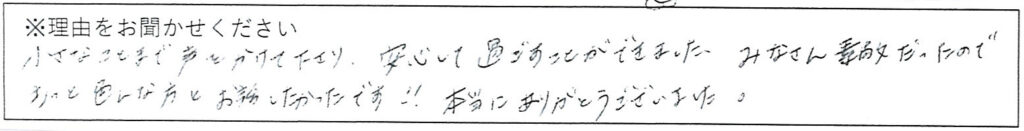 ※理由をお聞かせください
小さなことまで声をかけて下さり、安心して過ごすことができました みなさん素敵だったので
もっと色んな方とお話したかったです!! 本当にありがとうございました。